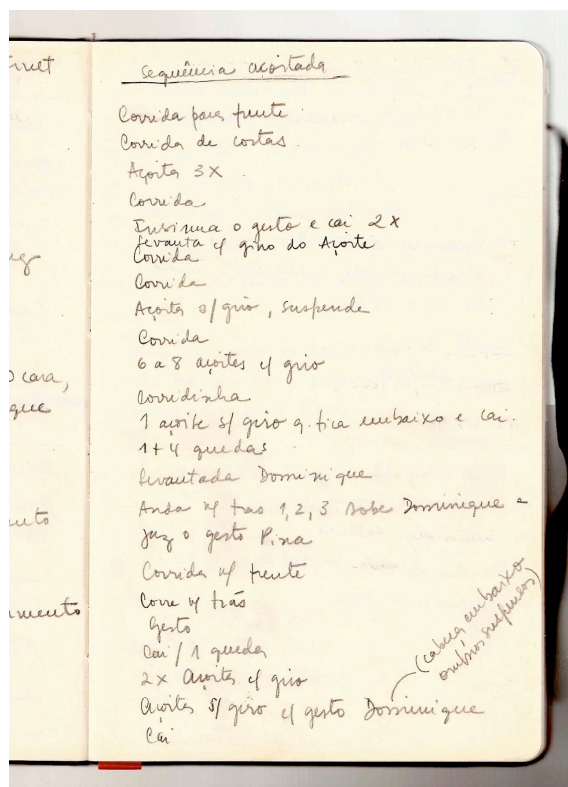 sequência açoitada
Corrida para frente
Corrida de costas.
Açoita 3X
Corrida
Insinua o gesto e cai 2X
levanta c/ giro do Açoite
Corrida
Corrida
Açoita s/ giro, suspende
Corrida
6 a 8 açoites c/ giro
corridinha
1 açoite s/ giro q. fica embaixo e cai.
1+4 quedas
levantada Dominique
Anda p/ tras 1, 2, 3 sobe Dominique e
faz o gesto Pina
Corrida p/ frente
Corre p/ trás
gesto
Cai / 1 queda
2X Açoites c/ giro
Açoites s/ giro c/ gesto Dominique
(cabeça embaixo
ombros suspensos)
Cai
cara,
que